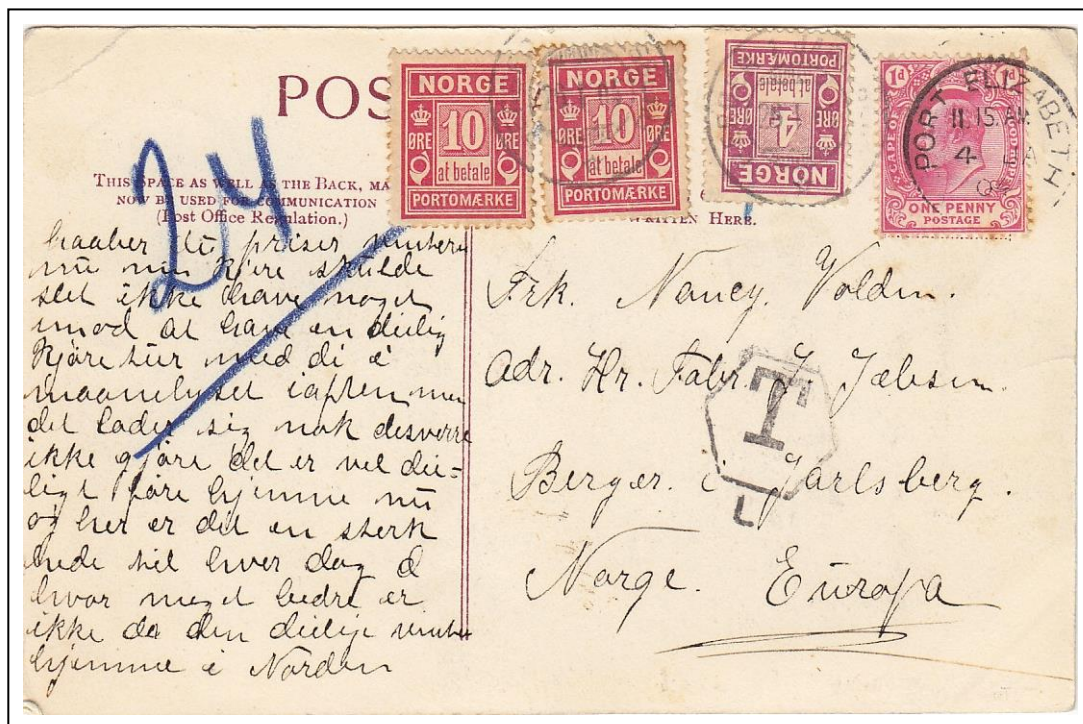 POS
24
NORGE
10
ØRE ØRE
at betale
PORTOMÆRKE
NORGE
10
ØRE ØRE
at betale
PORTOMÆRKE
NORGE
4
ØRE ØRE
at betale
PORTOMÆRKE
1d 1d
CAPE OF GOOD HOPE
ONE PENNY
POSTAGE
PORT ELIZABETH
11.15. AM
4
THIS SPACE AS WELL AS THE BACK, MA
NOW BE USED FOR COMMUNICATION
(Post Office Regulation.)
HERE.
haaber du priser
nu min kjere skulde
slet ikke have noget
imod at have en deilig
kjøre tur med di i
maanelyset iaften men
det lader sig nok desverre
ikke gjøre det er vel dei-
ligt føre hjemme nu
og her er det en sterk
hede hver dag
hvor meget bedre er
ikke da den deilige
hjemme i Norden
Frk. Nancy
Adr. Hr. Fabr. J. Jebsen.
Berger. i Jarlsberg.
Norge. Europa
T
L